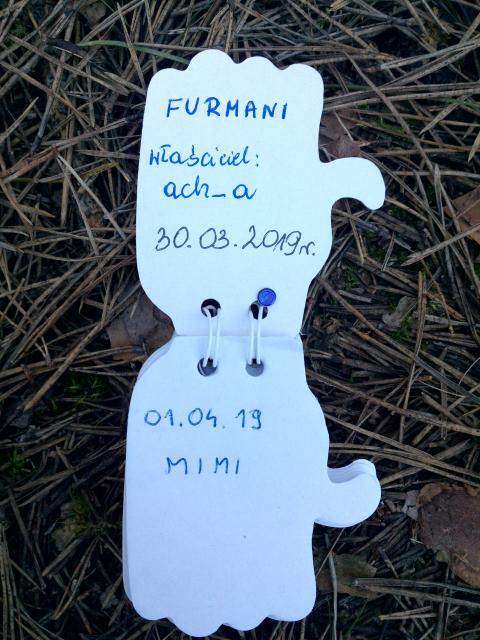 FURMANI
właściciel:
ach_a
30.03.2019r.
01.04.19
MIMI